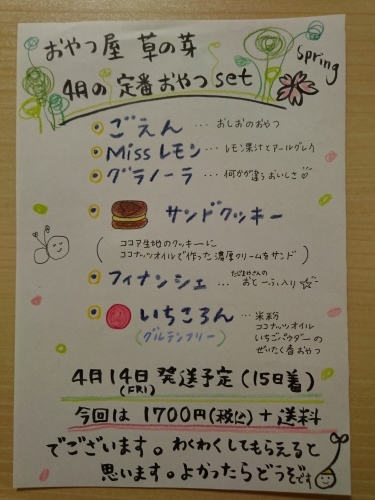 おやつ屋 草の芽
4月の 定番おやつ set
Spring
ごえん … おしおのおやつ
Miss レモン … レモン果汁とアールグレイ
グラノーラ … 何かが違うおいしさ
サンドクッキー
(ココア生地のクッキーに
ココナッツオイルで作った濃厚クリームをサンド)
フィナンシェ … たじまやさんの
おとーふ入り
いちころん … 米粉
(グルテンフリー)
ココナッツオイル
いちごパウダーの
ぜいたく春おやつ
4月14日 発送予定 (15日着)
(FRI)
今回は 1700円(税込)+送料
でございます。わくわくしてもらえると
思います。よかったらどうぞです